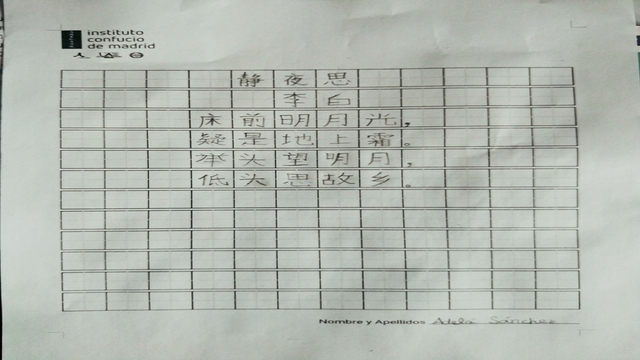 instituto
confucio
de madrid
静夜思
李白
床前明月光，
疑是地上霜。
举头望明月，
低头思故乡。
Nombre y Apellidos Adela Sánchez